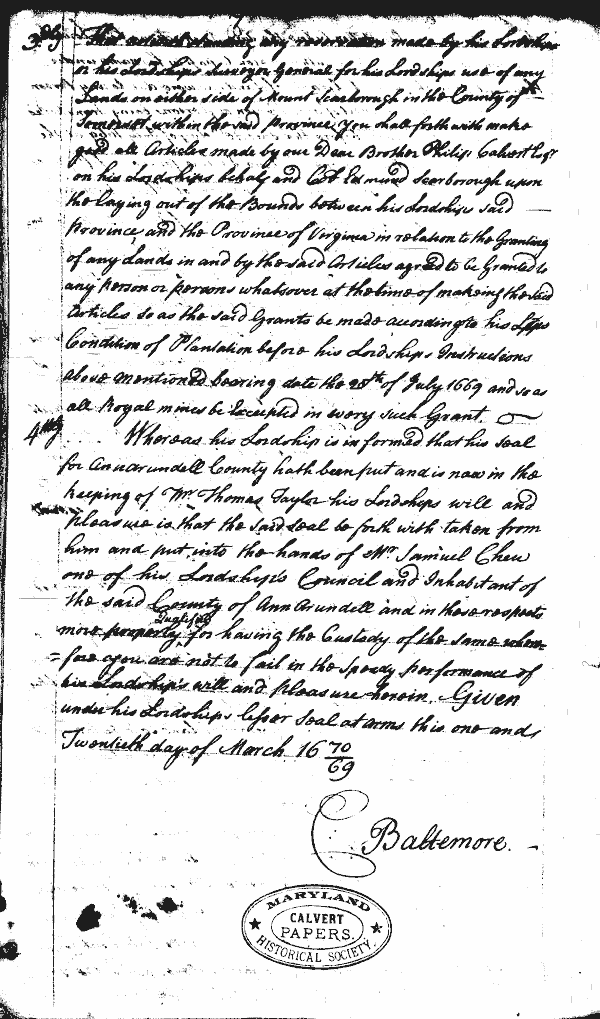 3dly That notwithstanding any reservation made by his Lordships
or his Lordships Surveyor General for his Lordships use of any
Lands on either side of Mount Scarborough in the County of
Somerset within the said Province, you shall forthwith make
good all Articles made by our Dear Brother Philip Calvert Esqr.
on his Lordships behalf and Coll Edmund Scarborough upon
the laying out of the Bounds between his Lordships said
Province, and the Province of Virginia in relation to the Granting
of any Lands in and by the said Articles agreed to be Granted to
any Person or persons whatsover at the time of making the said
Articles so as the said Grants be made according to his Lopps
Condition of Plantation before his Lordships Instructions
above mentioned bearing date the 28th of July 1669 and so as
all Royal mines be Excepted in every such Grant.
4thly Whereas his Lordship is informed that his Seal
for Annarundell County hath been put and is now in the
keeping of Mr. Thomas Taylor his Lordships will and
pleasure is that the said seal be forth with taken from
him and put into the hands of Mr. Samuel Chew
one of his Lordship's Council and Inhabitant of
the said County of Ann Arundell and in these respects
Qualifyed
more property for having the Custody of the same where-
fore you are not to fail in the speedy performance of
his Lordship's will and pleasure herein. Given
under his Lordships lesser Seal at arms this one and
Twentieth day of March 16 70/69
C Baltemore.
MARYLAND
CALVERT
PAPERS.
HISTORICAL SOCIETY.